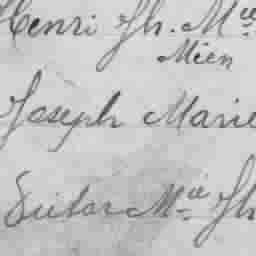 Henri Jh. Mie
Mien
Joseph Marie
Victor Mie Jh